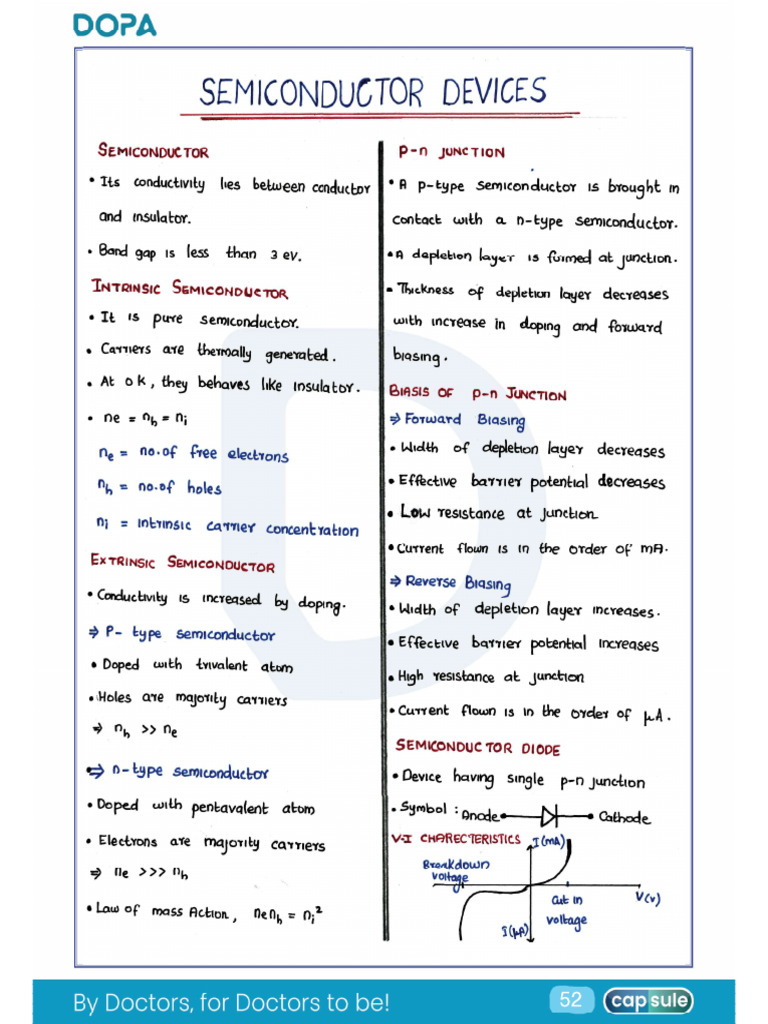 DOPA
SEMICONDUCTOR DEVICES
SEMICONDUCTOR
• Its conductivity lies between conductor
and insulator.
• Band gap is less than 3 ev.
INTRINSIC SEMICONDUCTOR
• It is pure semiconductor.
• Carriers are thermally generated.
• At 0k, they behaves like insulator.
• ne = nh = ni
ne = no. of free electrons
nh = no. of holes
ni = intrinsic carrier concentration
EXTRINSIC SEMICONDUCTOR
• Conductivity is increased by doping.
⇒ P- type semiconductor
• Doped with trivalent atom
• Holes are majority carriers
⇒ nh >> ne
⇒ n-type semiconductor
• Doped with pentavalent atom
• Electrons are majority carriers
⇒ ne >>> nh
• Law of mass Action, nenh = ni²
P-n JUNCTION
• A p-type semiconductor is brought in
contact with a n-type semiconductor.
• A depletion layer is formed at junction.
• Thickness of depletion layer decreases
with increase in doping and forward
biasing.
BIASIS OF P-n JUNCTION
⇒ Forward Biasing
• Width of depletion layer decreases
• Effective barrier potential decreases
• Low resistance at junction
• Current flown is in the order of mA.
⇒ Reverse Biasing
• Width of depletion layer increases.
• Effective barrier potential increases
• High resistance at junction
• Current flown is in the order of μA.
SEMICONDUCTOR DIODE
• Device having single p-n junction
• Symbol : Anode Cathode
V-I CHARECTERISTICS
I(mA)
Breakdown
voltage
V(v)
Cut in
voltage
I(μA)
By Doctors, for Doctors to be!
52
capsule